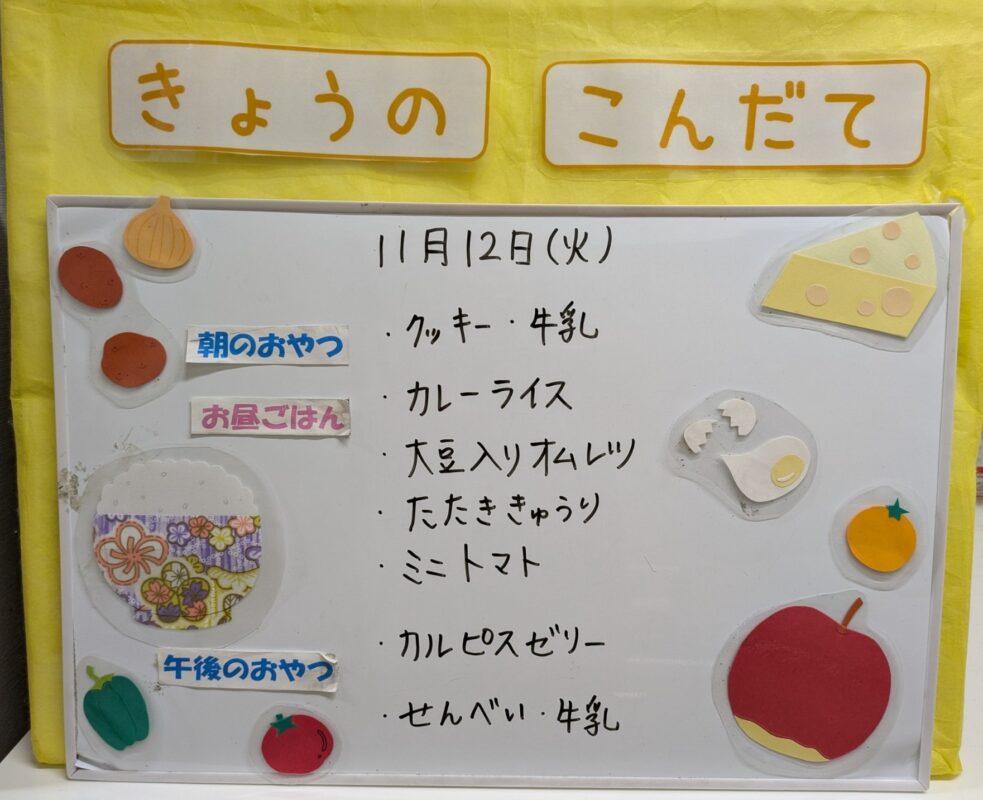 きょうの こんだて
11月12日(火)
朝のおやつ ・クッキー・牛乳
お昼ごはん ・カレーライス
・大豆入りオムレツ
・たたききゅうり
・ミニトマト
・カルピスゼリー
午後のおやつ ・せんべい・牛乳